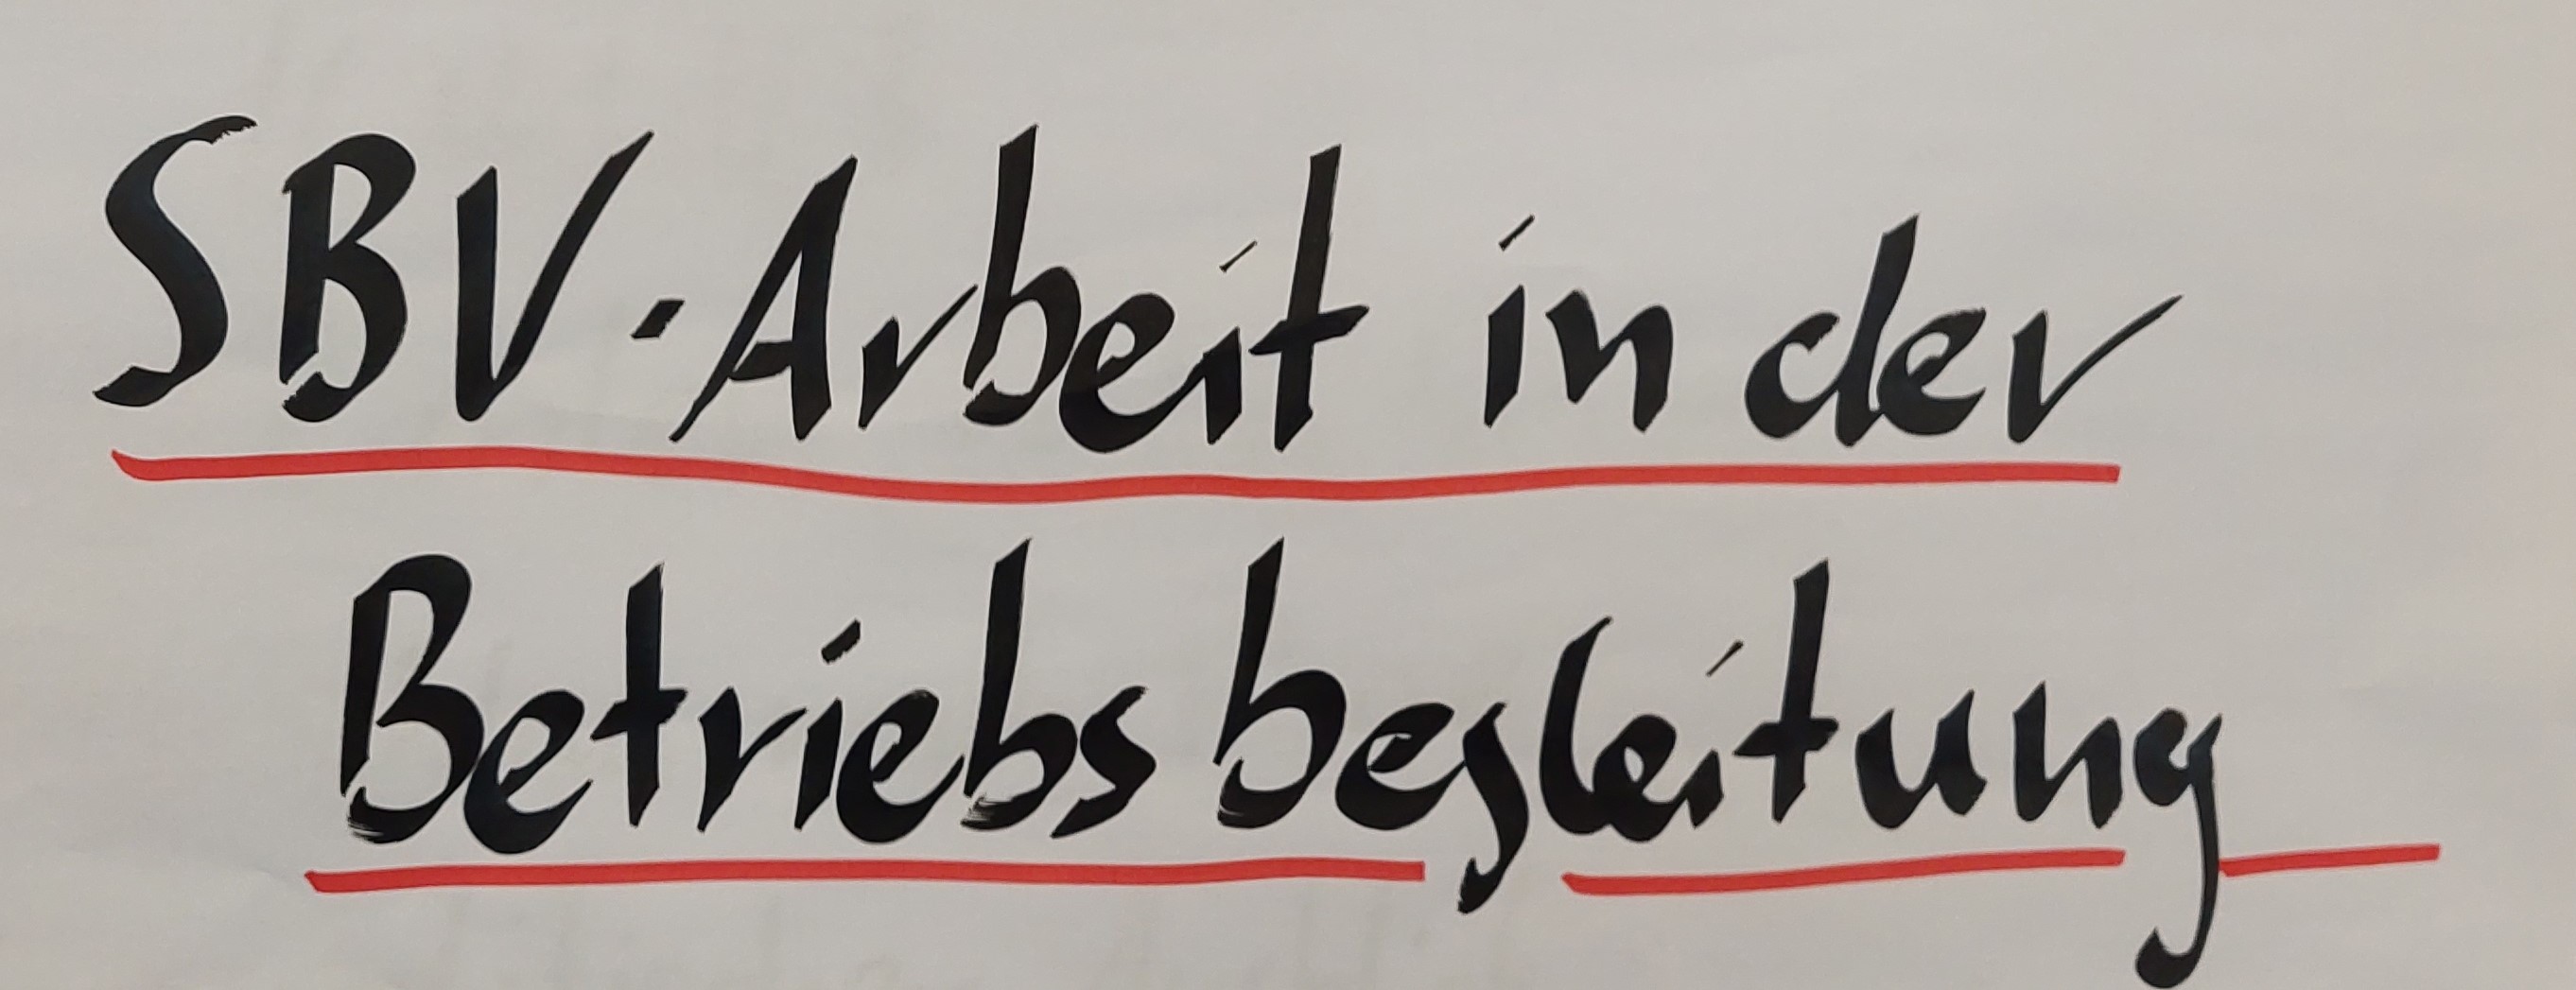 SBV-Arbeit in der
Betriebsbegleitung